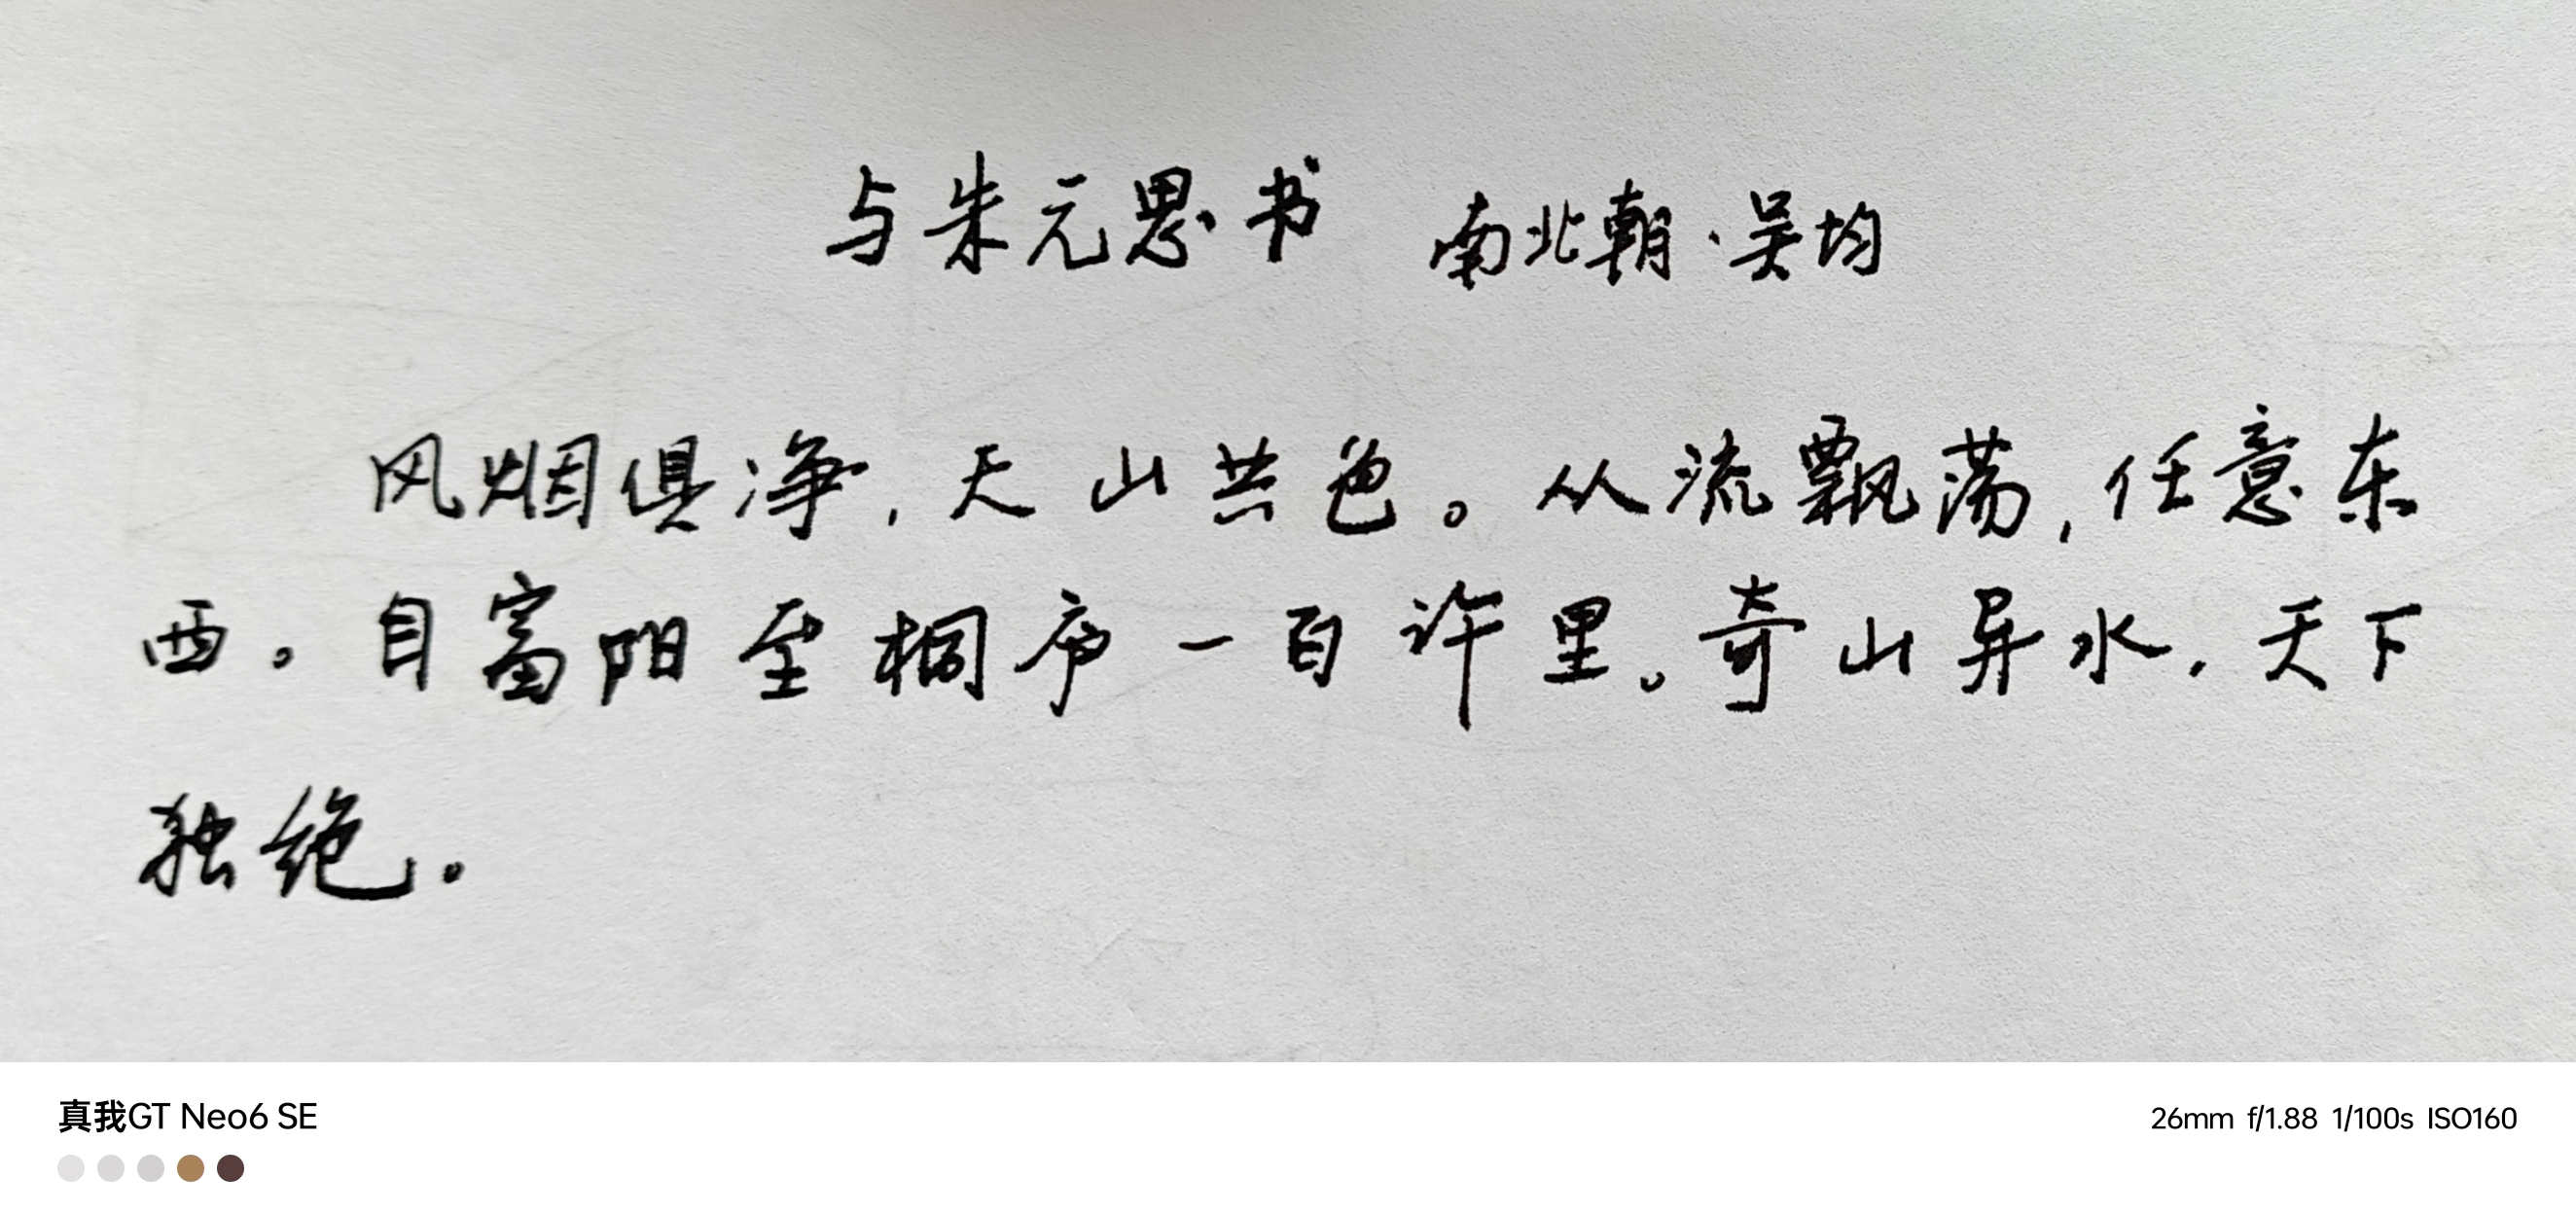 与朱元思书 南北朝·吴均
风烟俱净,天山共色。从流飘荡,任意东
西。自富阳至桐庐一百许里。奇山异水,天下
独绝。
真我GT Neo6 SE
26mm f/1.88 1/100s ISO160